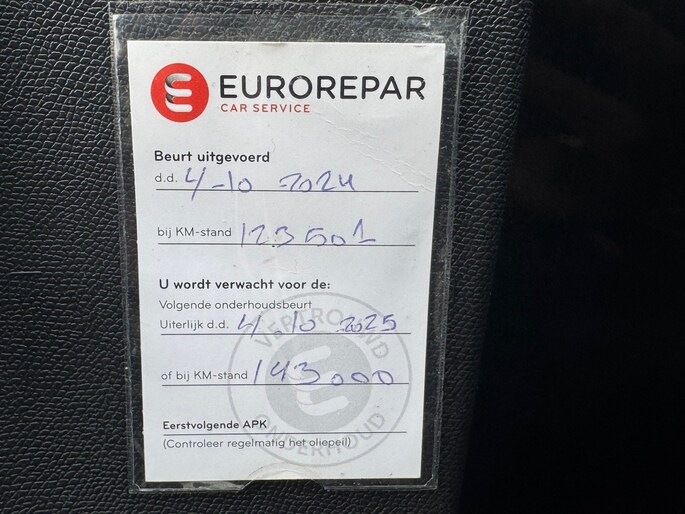 EUROREPAR
CAR SERVICE
Beurt uitgevoerd
d.d. 4-10 2024
bij KM-stand 123501
U wordt verwacht voor de:
Volgende onderhoudsbeurt
Uiterlijk d.d. 4.10 2025
of bij KM-stand 143000
VERTROUWD
ONDERHOUD
Eerstvolgende APK
(Controleer regelmatig het oliepeil)